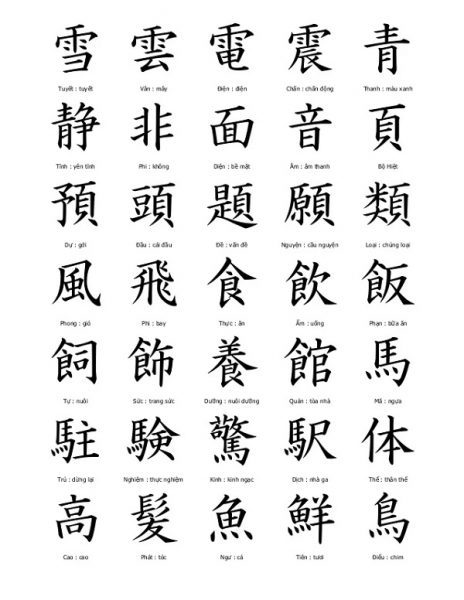 雪 雲 電 震 青
Tuyết : tuyết Vân : mây Điện : điện Chấn : chấn động Thanh : màu xanh
静 非 面 音 頁
Tĩnh : yên tĩnh Phi : không Diện : bề mặt Âm : âm thanh Bộ Hiệt
預 頭 題 願 類
Dự : gởi Đầu : cái đầu Đề : vấn đề Nguyện : cầu nguyện Loại : chủng loại
風 飛 食 飲 飯
Phong : gió Phi : bay Thực : ăn Ẩm : uống Phạn : bữa ăn
飼 飾 養 館 馬
Tự : nuôi Sức : trang sức Dưỡng : nuôi dưỡng Quán : tòa nhà Mã : ngựa
駐 験 驚 駅 体
Trú : dừng lại Nghiệm : thực nghiệm Kinh : kinh ngạc Dịch : nhà ga Thể : thân thể
高 髪 魚 鮮 鳥
Cao : cao Phát : tóc Ngư : cá Tiên : tươi Điểu : chim